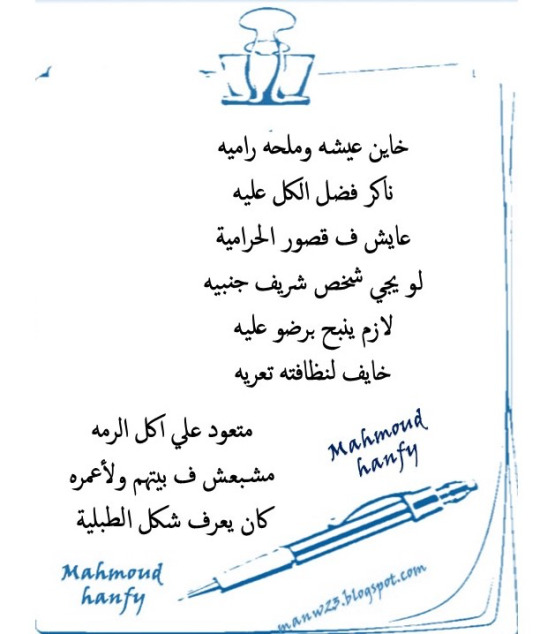 خاين عيشه وملحه راميه
ناكر فضل الكل عليه
عايش ف قصور الحرامية
لو يجي شخص شريف جنبيه
لازم ينبح برضو عليه
خايف لنظافته تعريه
متعود علي اكل الرمه
مشبعش ف بيتهم ولأعمره
كان يعرف شكل الطبلية
Mahmoud
hanfy
Mahmoud
hanfy
manw23.blogspot.com